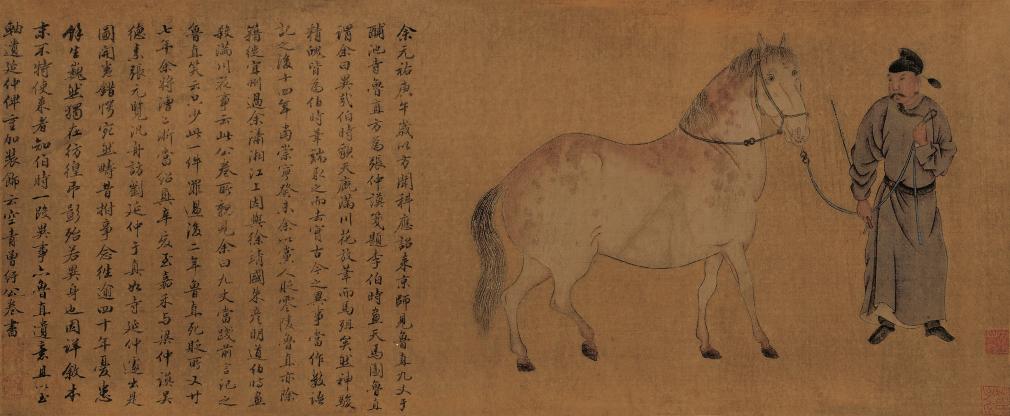 余元祐庚午歲以方聞科應詔來京師見魯直九丈于
酺池寺魯直方為張仲謨箋題李伯時畫天馬圖魯直
謂余曰異哉伯時貌天廄滿川花放筆而馬殂矣蓋神駿
精魄皆為伯時筆端取之而去實古今之異事當作數語
記之後十四年當崇寧癸未余以黨人貶零陵魯直亦除
籍徙宜州過余瀟湘江上因與徐靖國朱彥明道伯時畫
殺滿川花事云此公卷所親見余曰九丈當踐前言記之
魯直笑云只少此一件罪過後二年魯直死貶所又廿
七年余將漕二浙當紹興辛亥至嘉禾與梁仲謨吳
德素張元覽汎舟訪劉延仲于真如寺延仲遽出是
圖開卷錯愕宛然疇昔拊事念往逾四十年憂患
餘生巋然獨在彷徨弔影殆若異身也因詳敘本
末不特使來者知伯時一段異事亦魯直遺意且以玉
軸遺延仲俾重加裝飾云空青曾紆公卷書